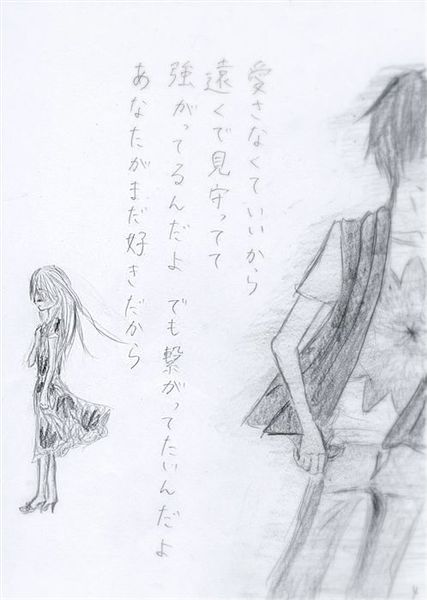 愛さなくていいから
遠くで見守ってて
強がってるんだよ でも繋がってたいんだよ
あなたがまだ好きだから